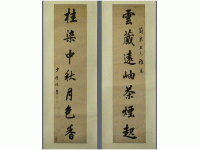 雲藏遠岫茶煙起
桂染中秋月色香